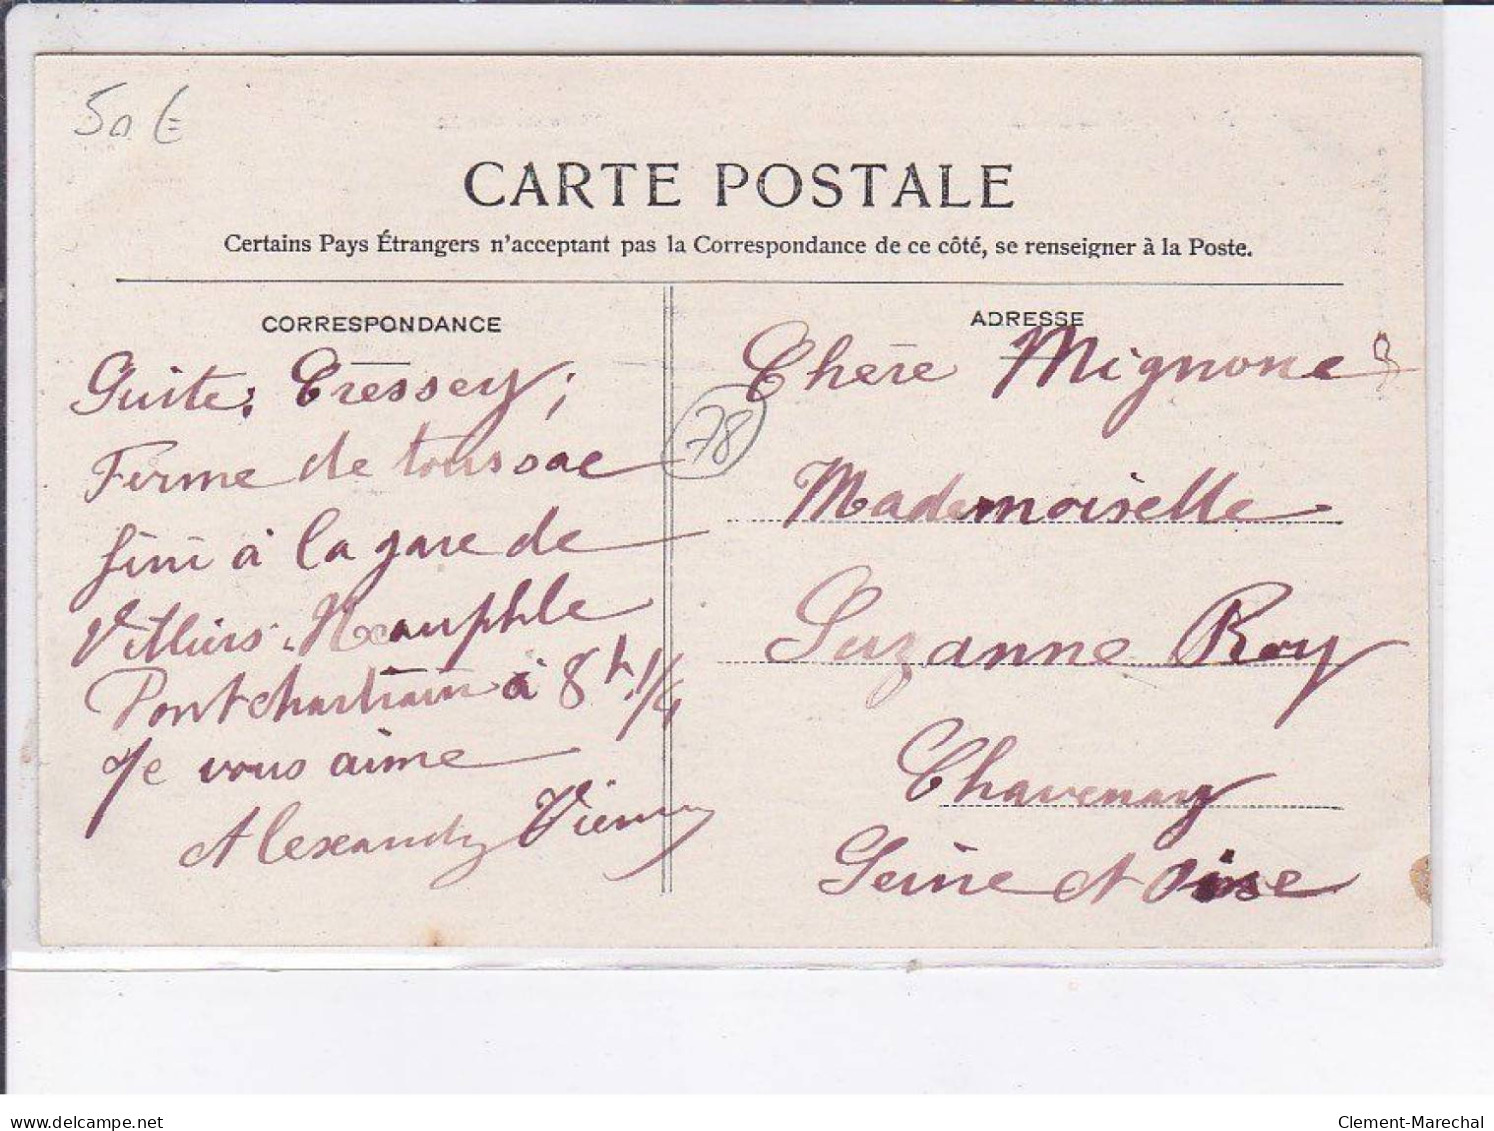 50 €
CARTE POSTALE
Certains Pays Étrangers n'acceptant pas la Correspondance de ce côté, se renseigner à la Poste.
CORRESPONDANCE
Suite: Cressey;
Ferme de toussac
fini à la gare de
Villiers-Neauphle
Pontchartrain à 8h 1/4
Je vous aime
Alexandre
78
ADRESSE
Chère Mignone
Mademoiselle
Suzanne Roy
Chavenay
Seine et Oise
delcampe.net
Clement-Marechal